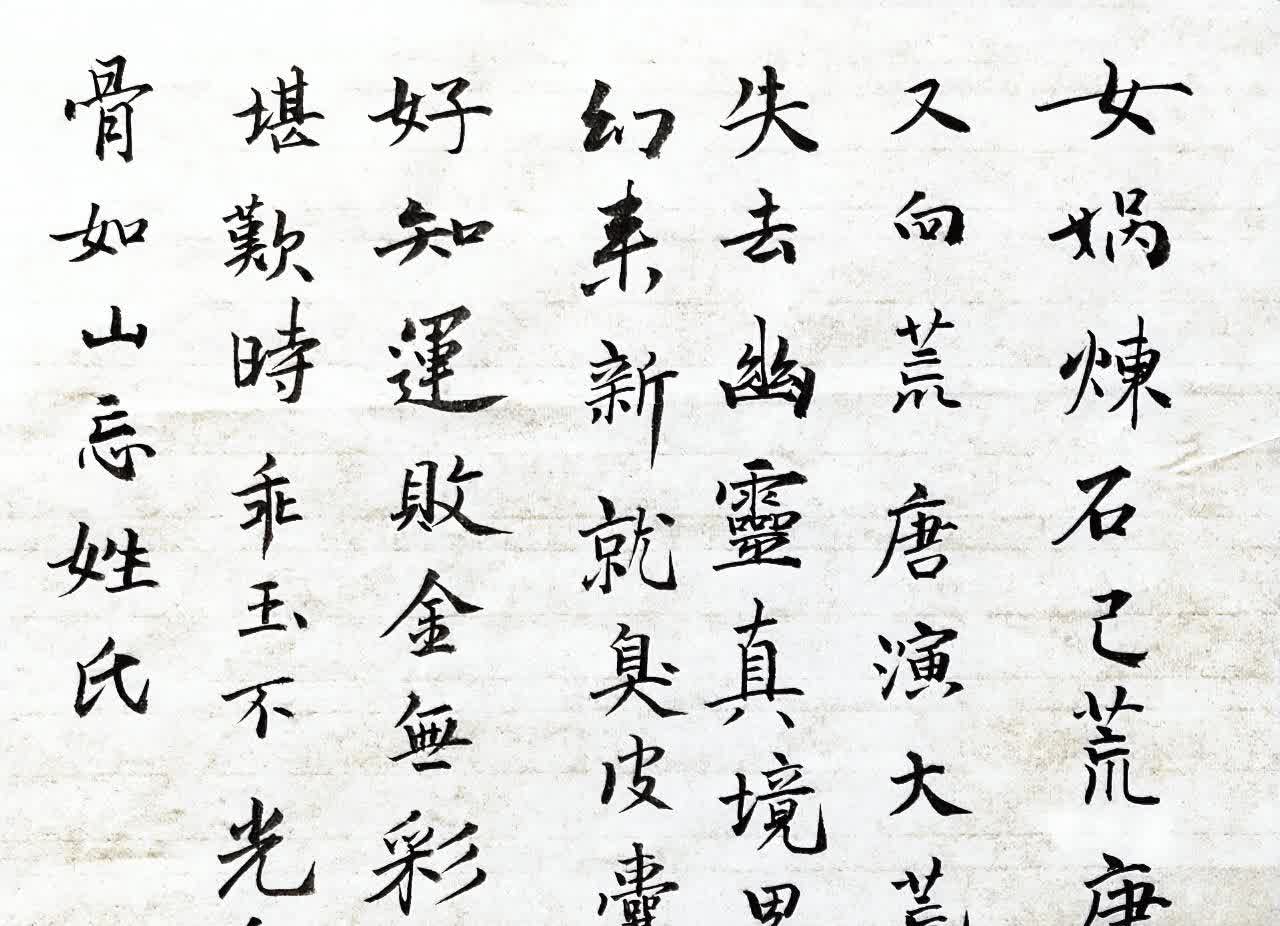 女媧煉石已荒唐
又向荒唐演大荒
失去幽靈真境
幻來新就臭皮囊
好知運敗金無彩
堪歎時乖玉不光
骨如山忘姓氏